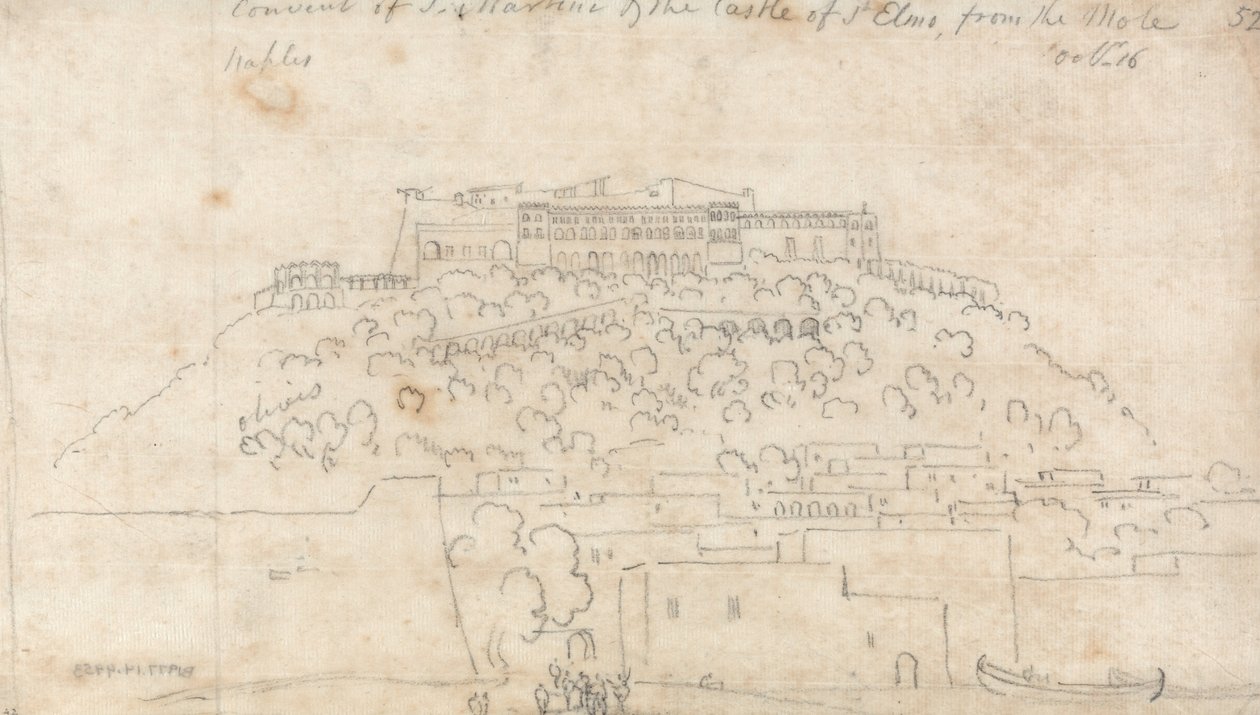 Convent of St. Martini & the Castle of St Elmo, from the Mole 52
Naples
olives
B1977.14.4453